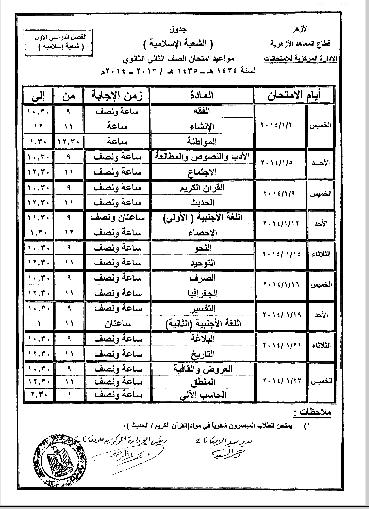 الأزهر
قطاع المعاهد الأزهرية
الإدارة المركزية للامتحانات
جدول
( الشعبة الإسلامية )
مواعيد امتحان الصف الثانى الثانوي
لسنة ١٤٣٤ هـ – ١٤٣٥ هـ / ٢٠١٣ – ٢٠١٤م
الفصل الدراسى الأول
( شعبة إسلامية )
أيام الامتحان المادة زمن الإجابة من إلى
الخميس ٢٠١٤/١/٢ الفقه ساعة ونصف ٩ ١٠,٣٠
الإنشاء ساعة ١١ ١٢
المواطنة ساعة ١٢,٣٠ ١,٣٠
الأحد ٢٠١٤/١/٥ الأدب والنصوص والمطالعة ساعة ونصف ٩ ١٠,٣٠
الاجتماع ساعة ونصف ١١ ١٢,٣٠
الخميس ٢٠١٤/١/٩ القرآن الكريم ساعة ونصف ٩ ١٠,٣٠
الحديث ساعة ونصف ١١ ١٢,٣٠
الأحد ٢٠١٤/١/١٢ اللغة الأجنبية (الأولى) ساعتان ونصف ٩ ١١,٣٠
الإحصاء ساعة ونصف ١٢ ١,٣٠
الثلاثاء ٢٠١٤/١/١٤ النحو ساعة ونصف ٩ ١٠,٣٠
التوحيد ساعة ونصف ١١ ١٢,٣٠
الخميس ٢٠١٤/١/١٦ الصرف ساعة ونصف ٩ ١٠,٣٠
الجغرافيا ساعة ونصف ١١ ١٢,٣٠
الأحد ٢٠١٤/١/١٩ التفسير ساعة ونصف ٩ ١٠,٣٠
اللغة الأجنبية (الثانية) ساعتان ١١ ١
الثلاثاء ٢٠١٤/١/٢١ البلاغة ساعة ونصف ٩ ١٠,٣٠
التاريخ ساعة ونصف ١١ ١٢,٣٠
الخميس ٢٠١٤/١/٢٣ العروض والقافية ساعة ونصف ٩ ١٠,٣٠
المنطق ساعة ونصف ١١ ١٢,٣٠
الحاسب الآلى ساعة ونصف ١ ٢,٣٠
ملاحظات :
١) يمتحن الطلاب المبصرون شفوياً فى مواد (القرآن الكريم / الحديث ) .